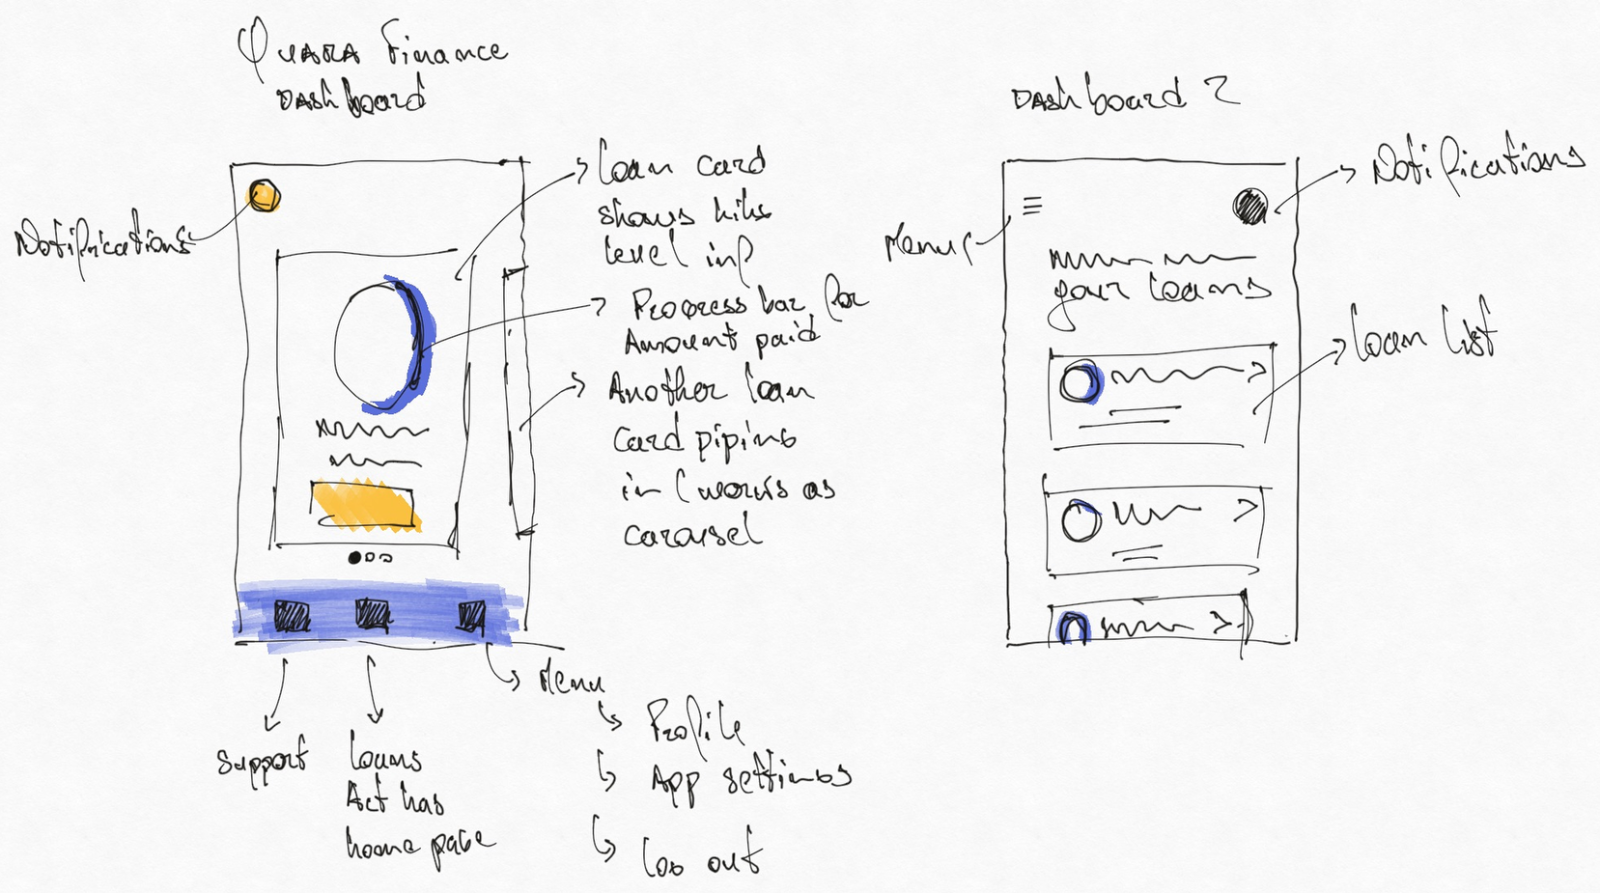 Quara Finance
Dashboard
Notifications
Loan card
shows high
level inf
Progress bar for
Amount paid
Another loan
card piping
in (works as
carousel
Support
Loans
Act has
home page
Menu
Profile
App settings
Log out
Dashboard 2
Notifications
Menu
your loans
Loan list